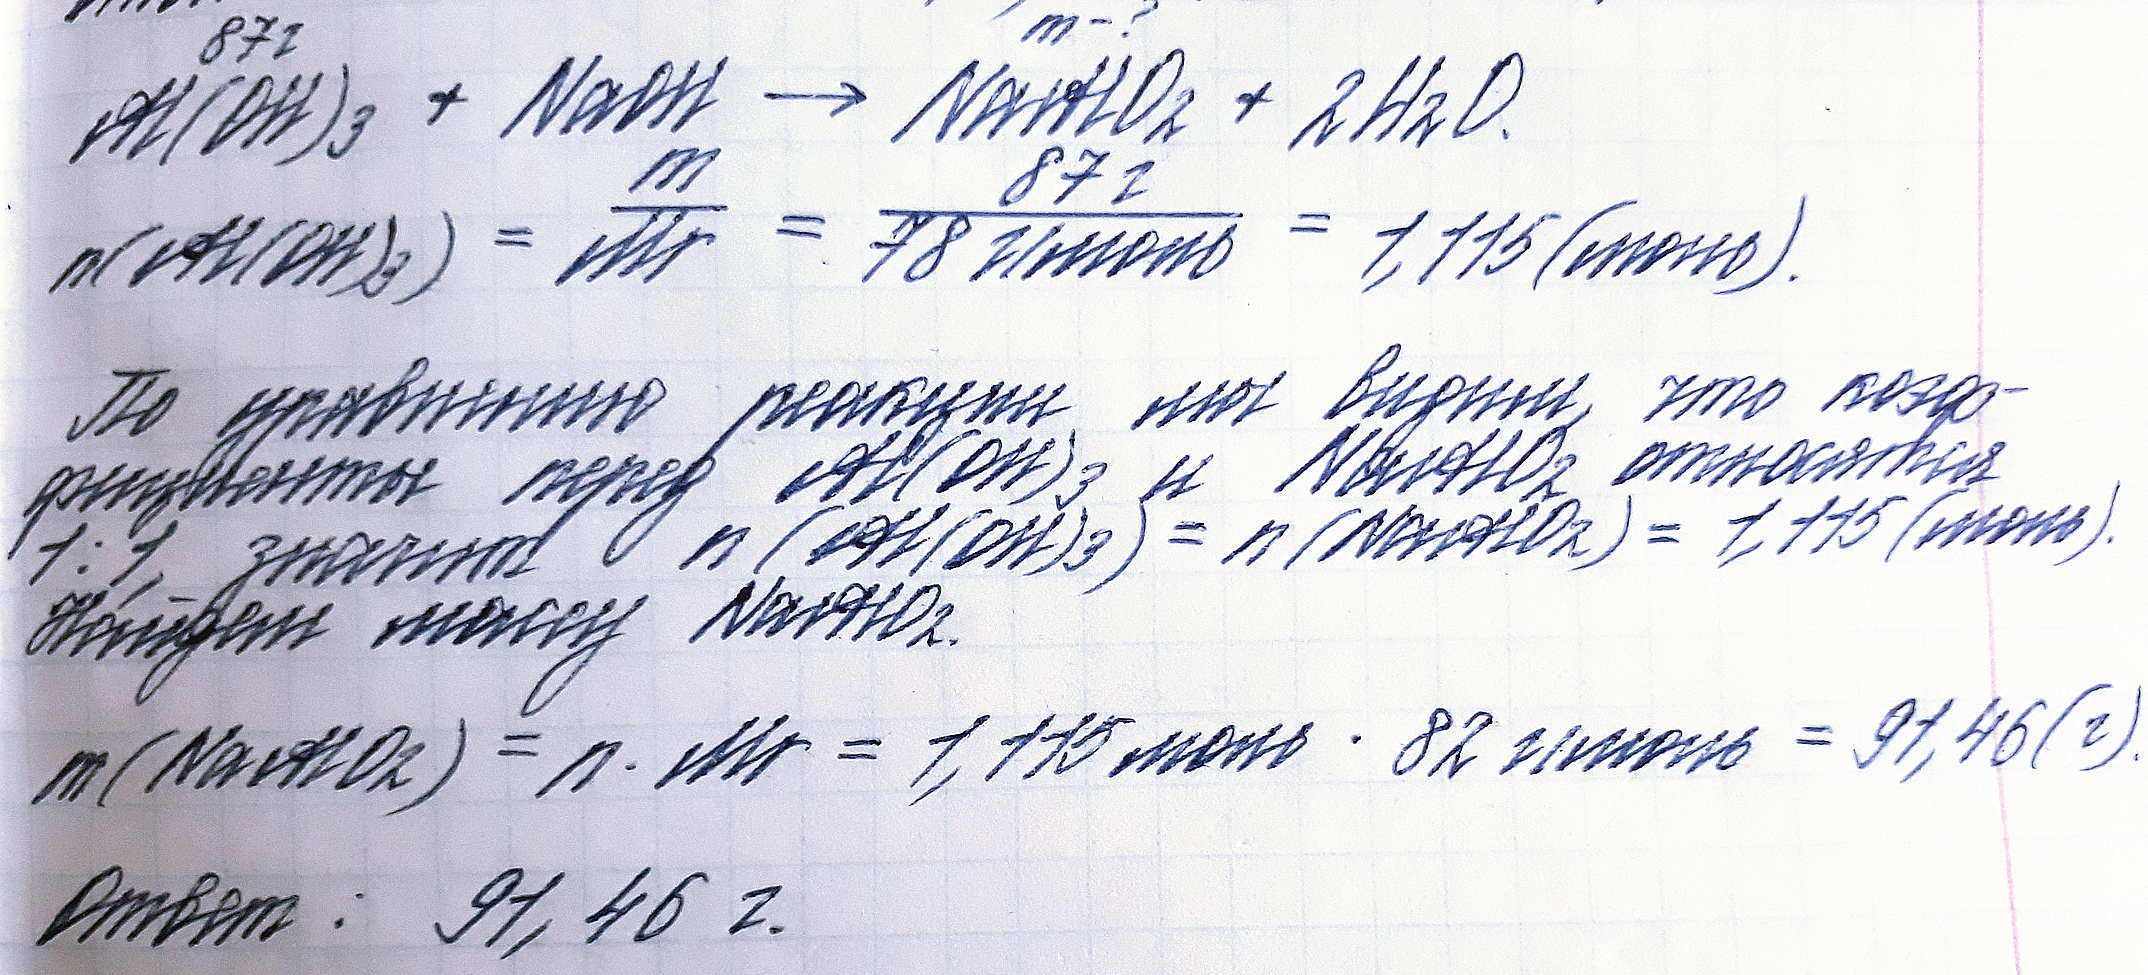 87г
m-?
Al(OH)3 + NaOH → NaAlO2 + 2H2O.
n(Al(OH)3) = m/Mr = 87г/78 г/моль = 1,115 (моль).
По уравнению реакции мы видим, что коэф-
фициенты перед Al(OH)3 и NaAlO2 относятся
1:1, значит n(Al(OH)3) = n(NaAlO2) = 1,115 (моль).
Найдем массу NaAlO2.
m(NaAlO2) = n · Mr = 1,115 моль · 82 г/моль = 91,46 (г).
Ответ: 91,46 г.